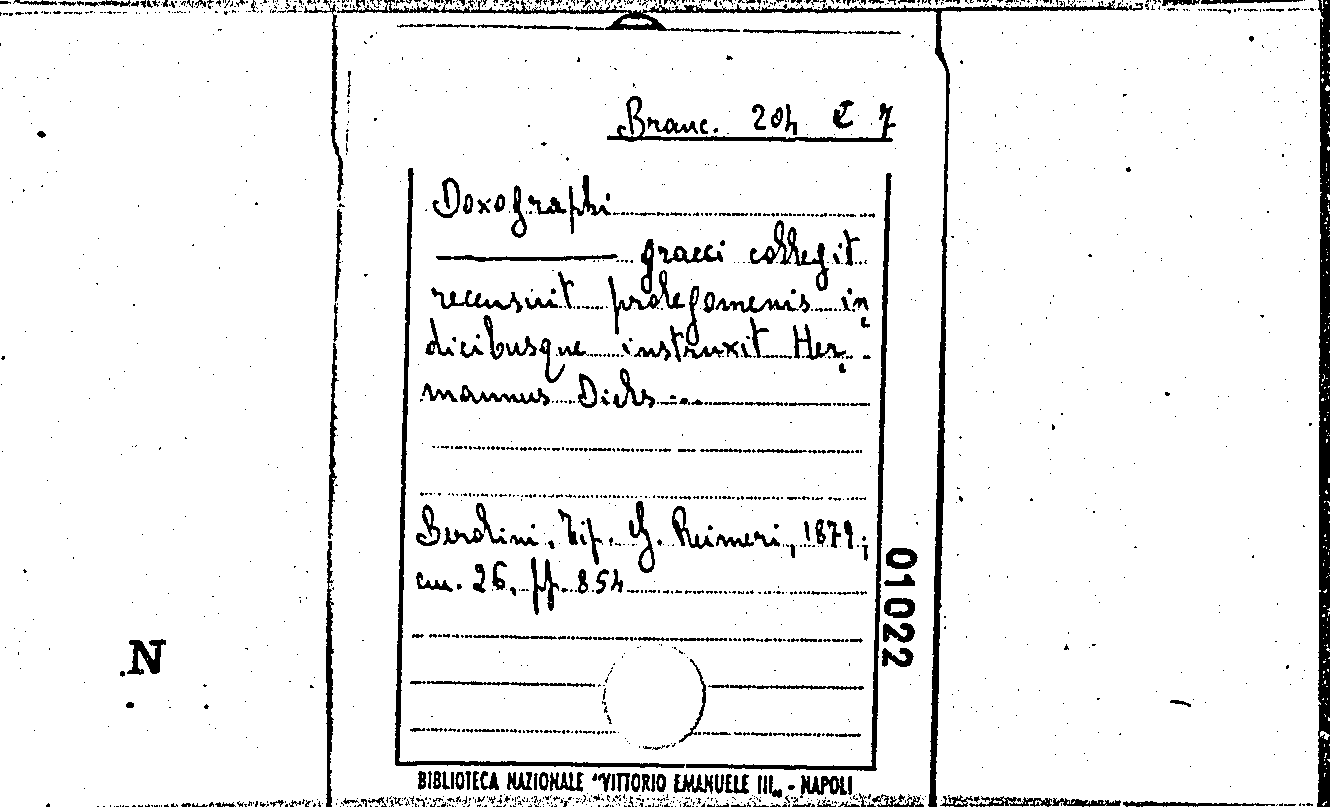 Branc. 204 C 7
Doxographi
graeci collegit
recensuit prolegomenis in
dicibusque instruxit Her
mannus Diels ...
Berolini, Tip. G. Reimeri, 1879;
cm. 26, pp. 854
01022
N
BIBLIOTECA NAZIONALE "VITTORIO EMANUELE III„ - NAPOLI